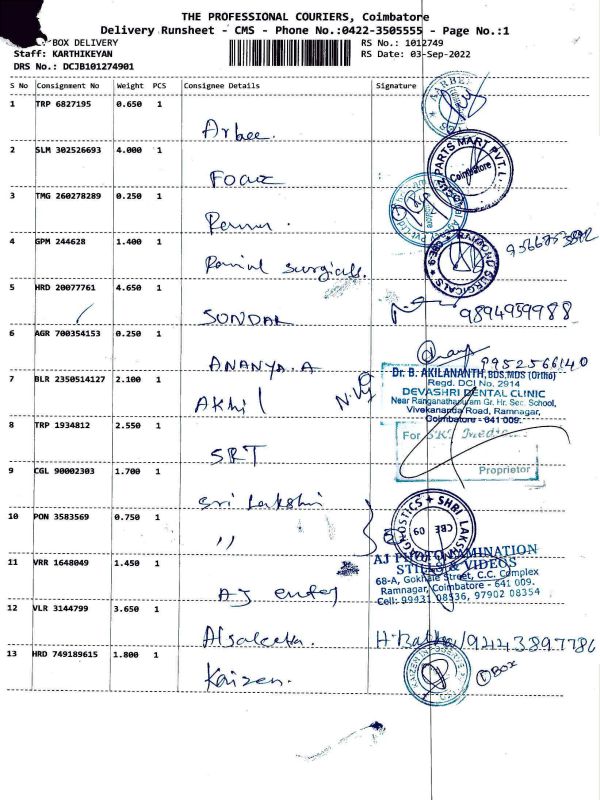 THE PROFESSIONAL COURIERS, Coimbatore
Delivery Runsheet - CMS - Phone No.:0422-3505555 - Page No.:1
: BOX DELIVERY
RS No.: 1012749
Staff: KARTHIKEYAN
RS Date: 03-Sep-2022
DRS No.: DCJB101274901
S No Consignment No Weight PCS Consignee Details Signature
1 TRP 6827195 0.650 1
Arbee.
2 SLM 302526693 4.000 1
PARTS MART PVT. L
Coimbatore
3 TMG 260278289 0.250 1
4 GPM 244628 1.400 1
surgicals.
RAIMOND SURGICALS
CBE-9
5 HRD 20077761 4.650 1
9894959988
SONDAR
6 AGR 700354153 0.250 1
9952566140
ANANYA.A
7 BLR 2350514127 2.100 1
Akhil
Dr. B. AKILANANTH, BDS,MDS (Ortho)
Regd. DCI No. 2914
DEVASHRI DENTAL CLINIC
Near Ranganathapuram Gr. Hr. Sec. School,
Vivekananda Road, Ramnagar,
Coimbatore - 641 009.
8 TRP 1934812 2.550 1
SRT
For SRT
Proprietor
9 CGL 90002303 1.700 1
Sri Lakshmi
10 PON 3583569 0.750 1
"
GNOSTICS * SHRI LAKS
CBE 09
11 VRR 1648049 1.450 1
AJ
AJ PHOTO LAMINATION
STILLS & VIDEOS
68-A, Gokhale Street, C.C. Complex
Ramnagar, Coimbatore - 641 009.
Cell: 99431 08536, 97902 08354
12 VLR 3144799 3.650 1
13 HRD 749189615 1.800 1
Kaizen.
1 BOX